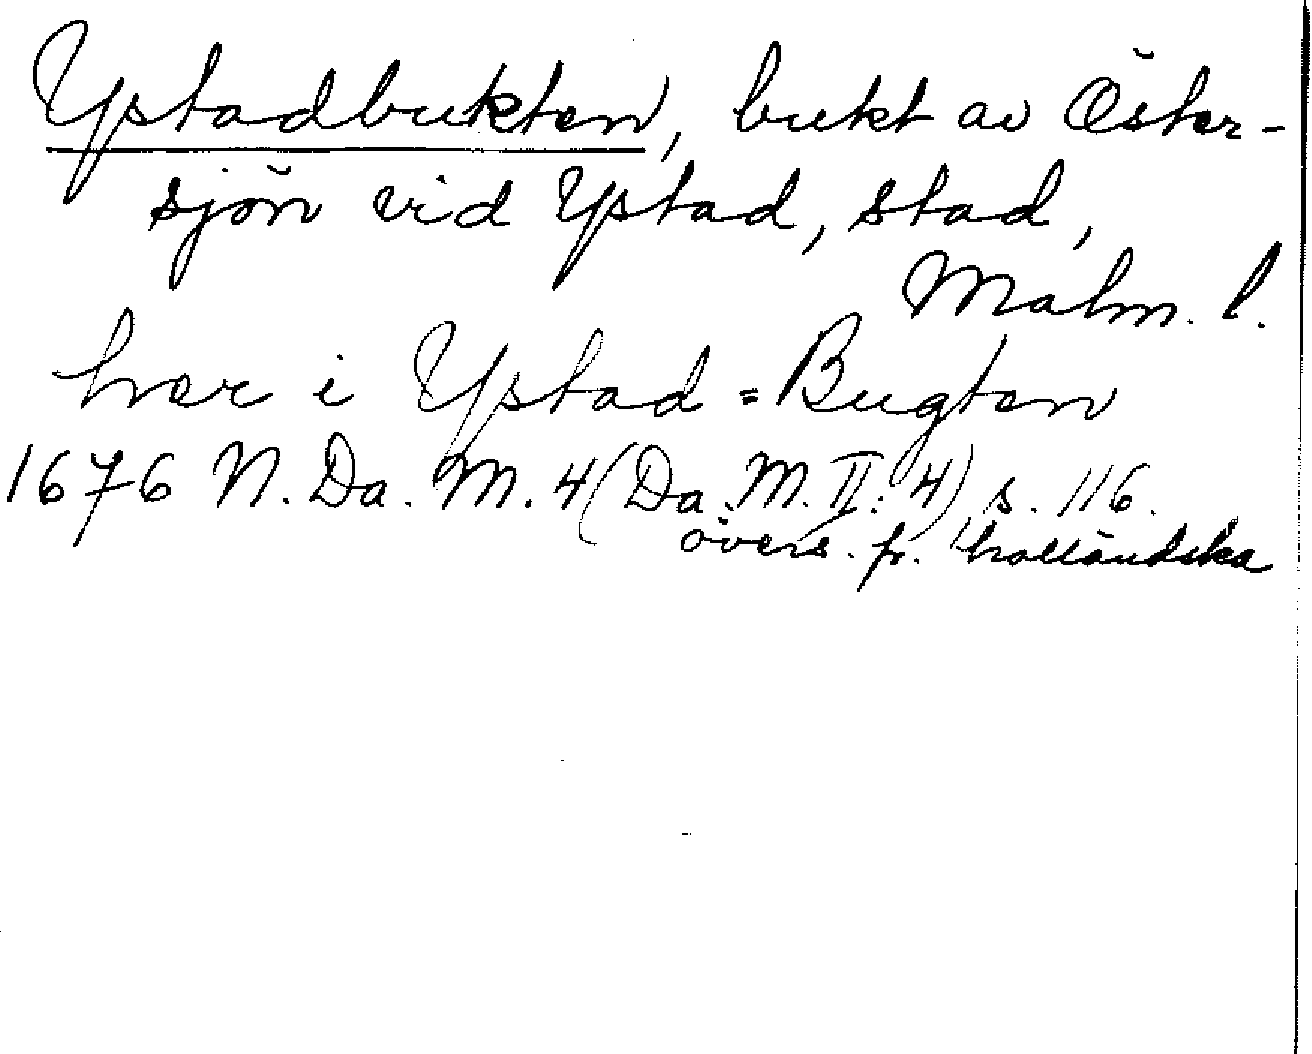 Ystadbukten, bukt av Öster-
sjön vid Ystad, stad,
Malm. l.
her i Ystad=Bugten
1676 N. Da. M. 4 (Da. M. II: 4) s. 116.
övers. fr. holländska